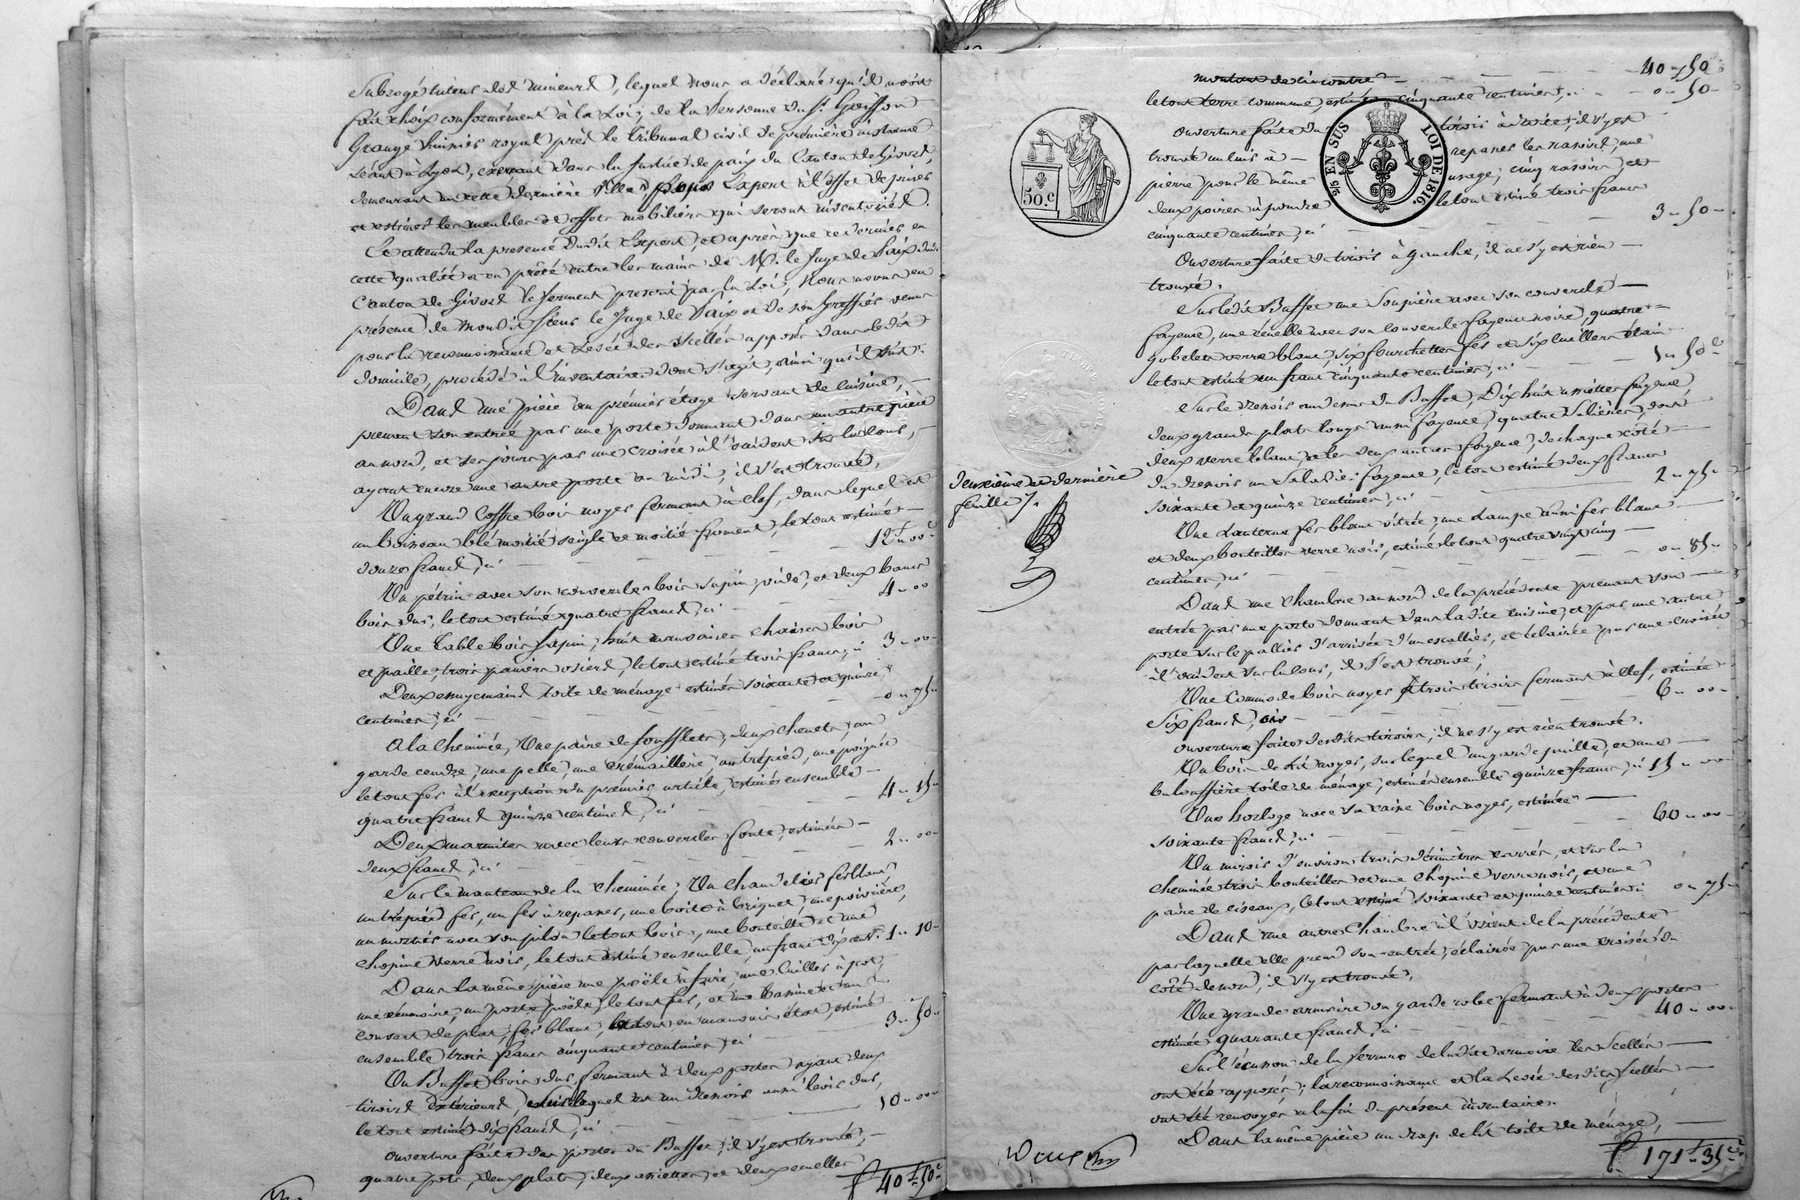 Subrogé tuteur des mineurs, lequel nous a déclaré qu'il avoit
fait choix conformément à la Loi, de la personne du Sr. Goiffon
Grange huissier royal près le tribunal civil de première instance
séant à Lyon, exerçant dans la Justice de paix du Canton de Givors,
demeurant en cette dernière Ville, pour Expert à l'effet de priser
et estimer les meubles & effets mobiliers qui seront inventoriés.
Et attendu la présence dudit Expert, et après que ce dernier en
cette qualité a eu prêté entre les mains de Mr. le Juge de Paix du
Canton de Givors le serment prescrit par la Loi, Nous avons en
présence de mondit Sieur le Juge de Paix et de son Greffier venus
pour la reconnoissance et Levée des scellés apposés dans ledit
domicile, procédé à l'inventaire dont s'agit, ainsi qu'il suit.
Dans une pièce au premier étage servant de cuisine,
prenant son entrée par une porte donnant dans une autre pièce
au nord, et ses jours par une croisée à l'occident sur la cour,
ayant encore une autre porte au midi, il s'est trouvé,
Un grand Coffre bois noyer fermant à clef, dans lequel est
un boisseau blé moitié seigle et moitié froment, le tout estimé
douze francs, ci 12f „ 00c
Un pétrin avec son couvercle bois sapin, vide, et deux bancs
bois dur, le tout estimé quatre francs, ci 4 „ 00
Une Table bois sapin, huit mauvaises chaises bois
et paille, trois paniers osiers, le tout estimé trois francs, ci 3 „ 00
Deux essuyemains toile de ménage estimés soixante et quinze
centimes, ci 0 „ 75
A la cheminée, Une paire de soufflets, deux chenets, un
garde cendre, une pelle, une crémaillère, un trépied, une poignée
le tout fer à l'exception du premier article, estimés ensemble
quatre francs quinze centimes, ci 4 „ 15
Deux marmites avec leurs couvercles fonte, estimées
deux francs, ci 2 „ 00
Sur le manteau de la cheminée, Un chandelier fer blanc,
un trépied fer, un fer à repasser, une boite à briquet, une poivrière,
un mortier avec son pilon le tout bois, une bouteille et une
chopine verre noir, le tout estimé ensemble, un franc dix cent. 1 „ 10
Dans la même pièce une poële à frire, une cuiller à pot,
une écumoire, un porte poële, le tout fer, et une bassine et un
couvert de plat, fer blanc, le tout en mauvais état, estimé
ensemble trois francs cinquante centimes, ci 3 „ 50
Un Buffet bois dur, fermant à deux portes ayant deux
tiroirs extérieurs, sur lequel est un dressoir aussi bois dur,
le tout estimé dix francs, ci 10 „ 00
Ouverture faite des portes du Buffet, il s'y est trouvé,
quatre pots, deux plats, deux assiettes, et deux écuelles
40f „ 50c
40 „ 50
le tout terre commune, estimé cinquante centimes, ci 0 „ 50
Ouverture faite du tiroir à droite, il s'y est
trouvé un cuir à repasser les rasoirs, une
pierre pour le même usage, cinq rasoirs, et
deux poires à poudre le tout estimé trois francs
cinquante centimes, ci 3 „ 50
50.c
5/10 EN SUS LOI DE 1816.
Ouverture faite du tiroir à gauche, il ne s'y est rien
trouvé.
Sur ledit Buffet une Soupière avec son couvercle
fayence, une écuelle avec son couvercle fayence noire, quatre
gobelets verre blanc, six fourchettes fer et six cuillers étain
le tout estimé un franc cinquante centimes, ci 1 „ 50c
Sur le dressoir au dessus du Buffet, Dix huit assiettes fayence,
deux grands plats longs aussi fayence, quatre salières, dont
deux verre blanc, et les deux autres fayence, de chaque côté
du dressoir un saladier fayence, le tout estimé deux francs
soixante et quinze centimes, ci 2 „ 75
deuxième et dernière
feuille
Une Lanterne fer blanc vitrée, une Lampe aussi fer blanc
et deux bouteilles verre noir, estimé le tout quatre vingt cinq
centimes, ci 0 „ 85
Dans une Chambre au nord de la précédente prenant son
entrée par une porte donnant dans ladite cuisine, et par une autre
porte sur le pallier d'arrivée d'un escalier, et éclairée par une croisée
à l'occident sur la cour, il s'est trouvé,
Une Commode bois noyer à trois tiroirs fermant à clef, estimée
Six francs, ci 6 „ 00
Ouverture faite desdits tiroirs, il ne s'y est rien trouvé.
Un bois de Lit noyer, sur lequel un garde paille, et une
baloufière toile de ménage, estimés ensemble quinze francs, ci 15 „ 00
Une horloge avec sa caisse bois noyer, estimée
soixante francs, ci 60 „ 00
Un miroir d'environ trois décimètres carrés, et sur la
cheminée trois bouteilles et une chopine verre noir, et une
paire de ciseaux, le tout estimé soixante et quinze centimes 0 „ 75
Dans une autre Chambre à l'orient de la précédente
par laquelle elle prend son entrée, éclairée par une croisée du
côté de nord, il s'y est trouvé,
Une grande armoire ou garde robe fermant à deux portes
estimée quarante francs, ci 40 „ 00
Sur l'écusson de la serrure de ladite armoire les Scellés
ont été apposés; la reconnoissance et la Levée desdits scellés
ont été renvoyés à la fin du présent inventaire.
Dans la même pièce un drap de lit toile de ménage,
171f „ 35c